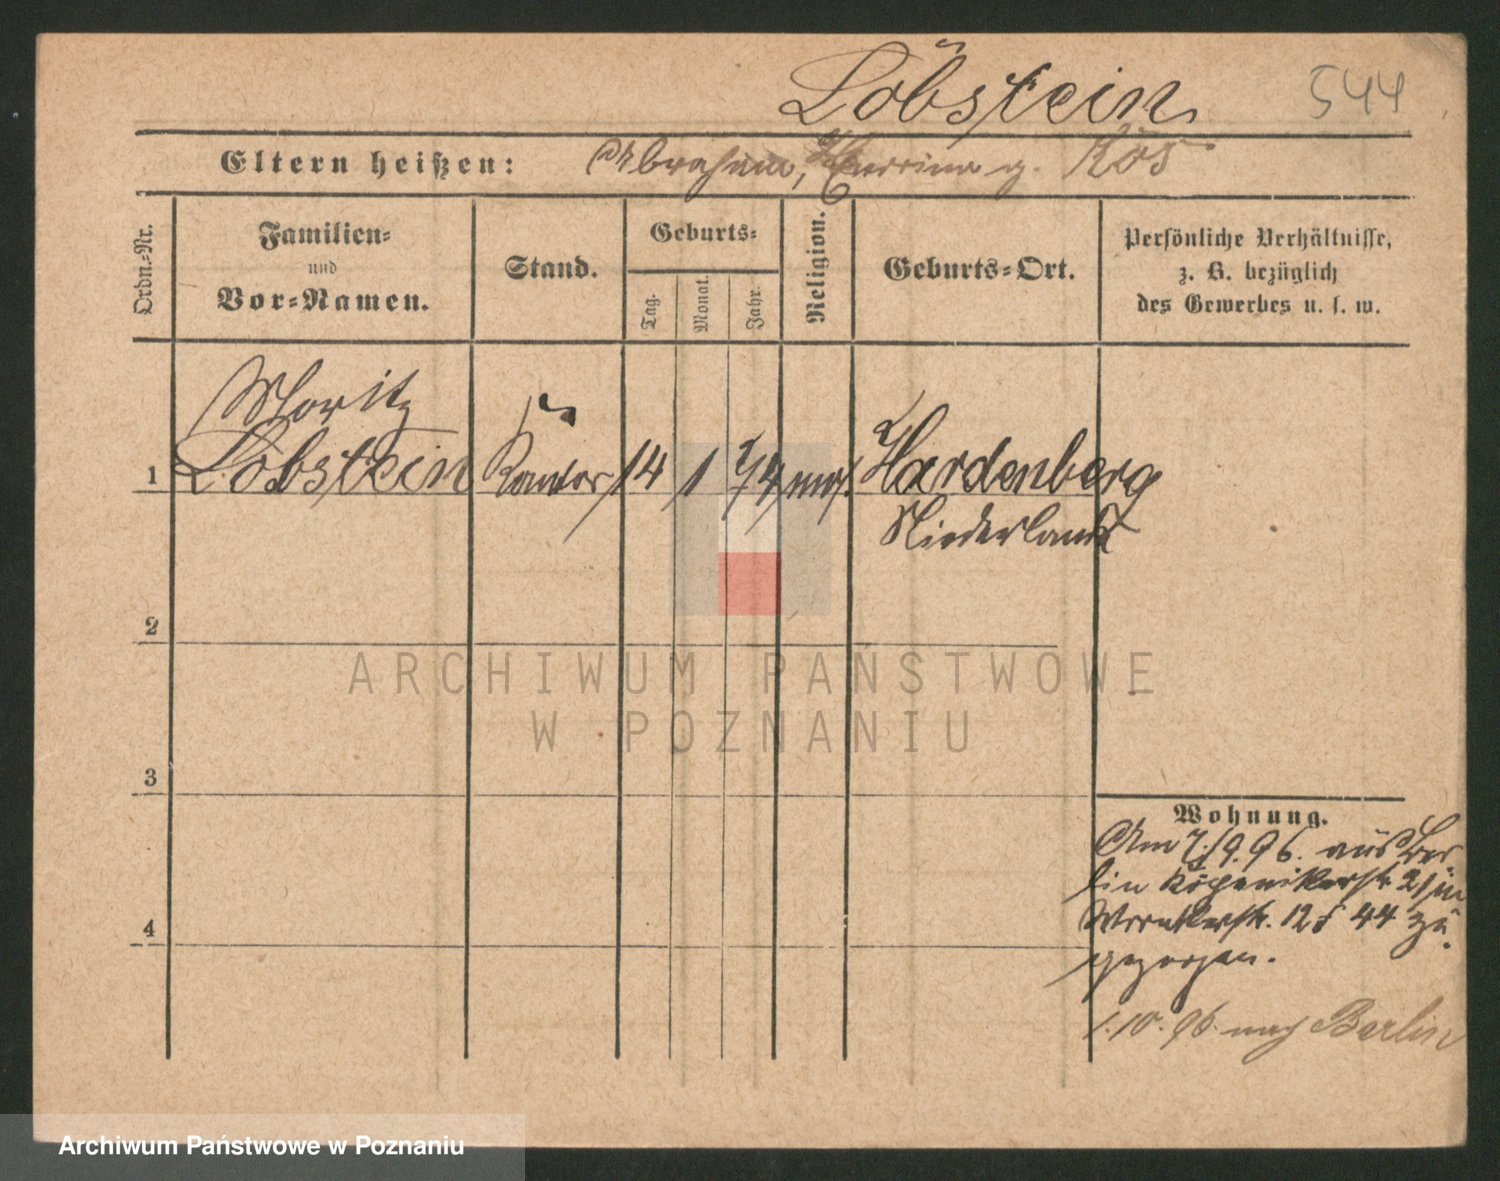 Löbstein
544
Eltern heißen: Abraham, g. Kos
Ordn.-Nr.
Familien-
und
Vor-Namen.
Stand.
Geburts-
Tag.
Monat.
Jahr.
Religion.
Geburts-Ort.
Persönliche Verhältnisse,
z. B. bezüglich
des Gewerbes u. s. w.
Moritz
1 Löbstein Kantor 14 1 74 mos. Hardenberg
Niederlande
2
3
4
Wohnung.
Am 7./9. 96. aus Ber-
lin Köpenikerstr 21 in
12 44 zu-
gezogen.
1. 10. 96. nach Berlin
ARCHIWUM PAŃSTWOWE
W POZNANIU
Archiwum Państwowe w Poznaniu